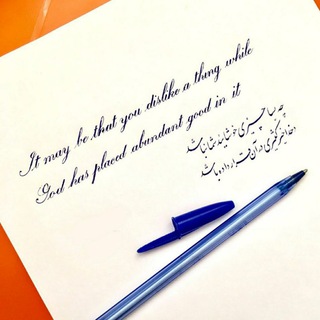 It may be that you dislike a thing while
God has placed abundant good in it
چه بسا چیزی خوشایند شما نباشد
و خدا خیر کثیری در آن قرار داده باشد